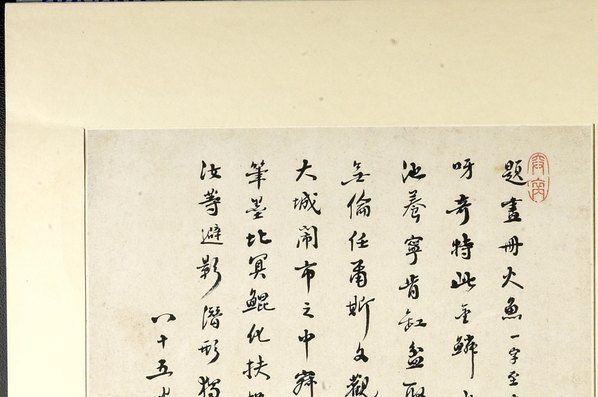 題畫冊火魚一字至
呀奇特此金鱗
池養寧肯缸盆
無倫任爾斯文觀
大城鬧市之中
筆墨比冥鯤化扶
汝等避影潛形獨
八十五